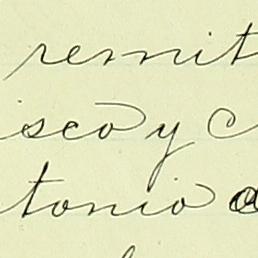 remit
isco y C
tonio